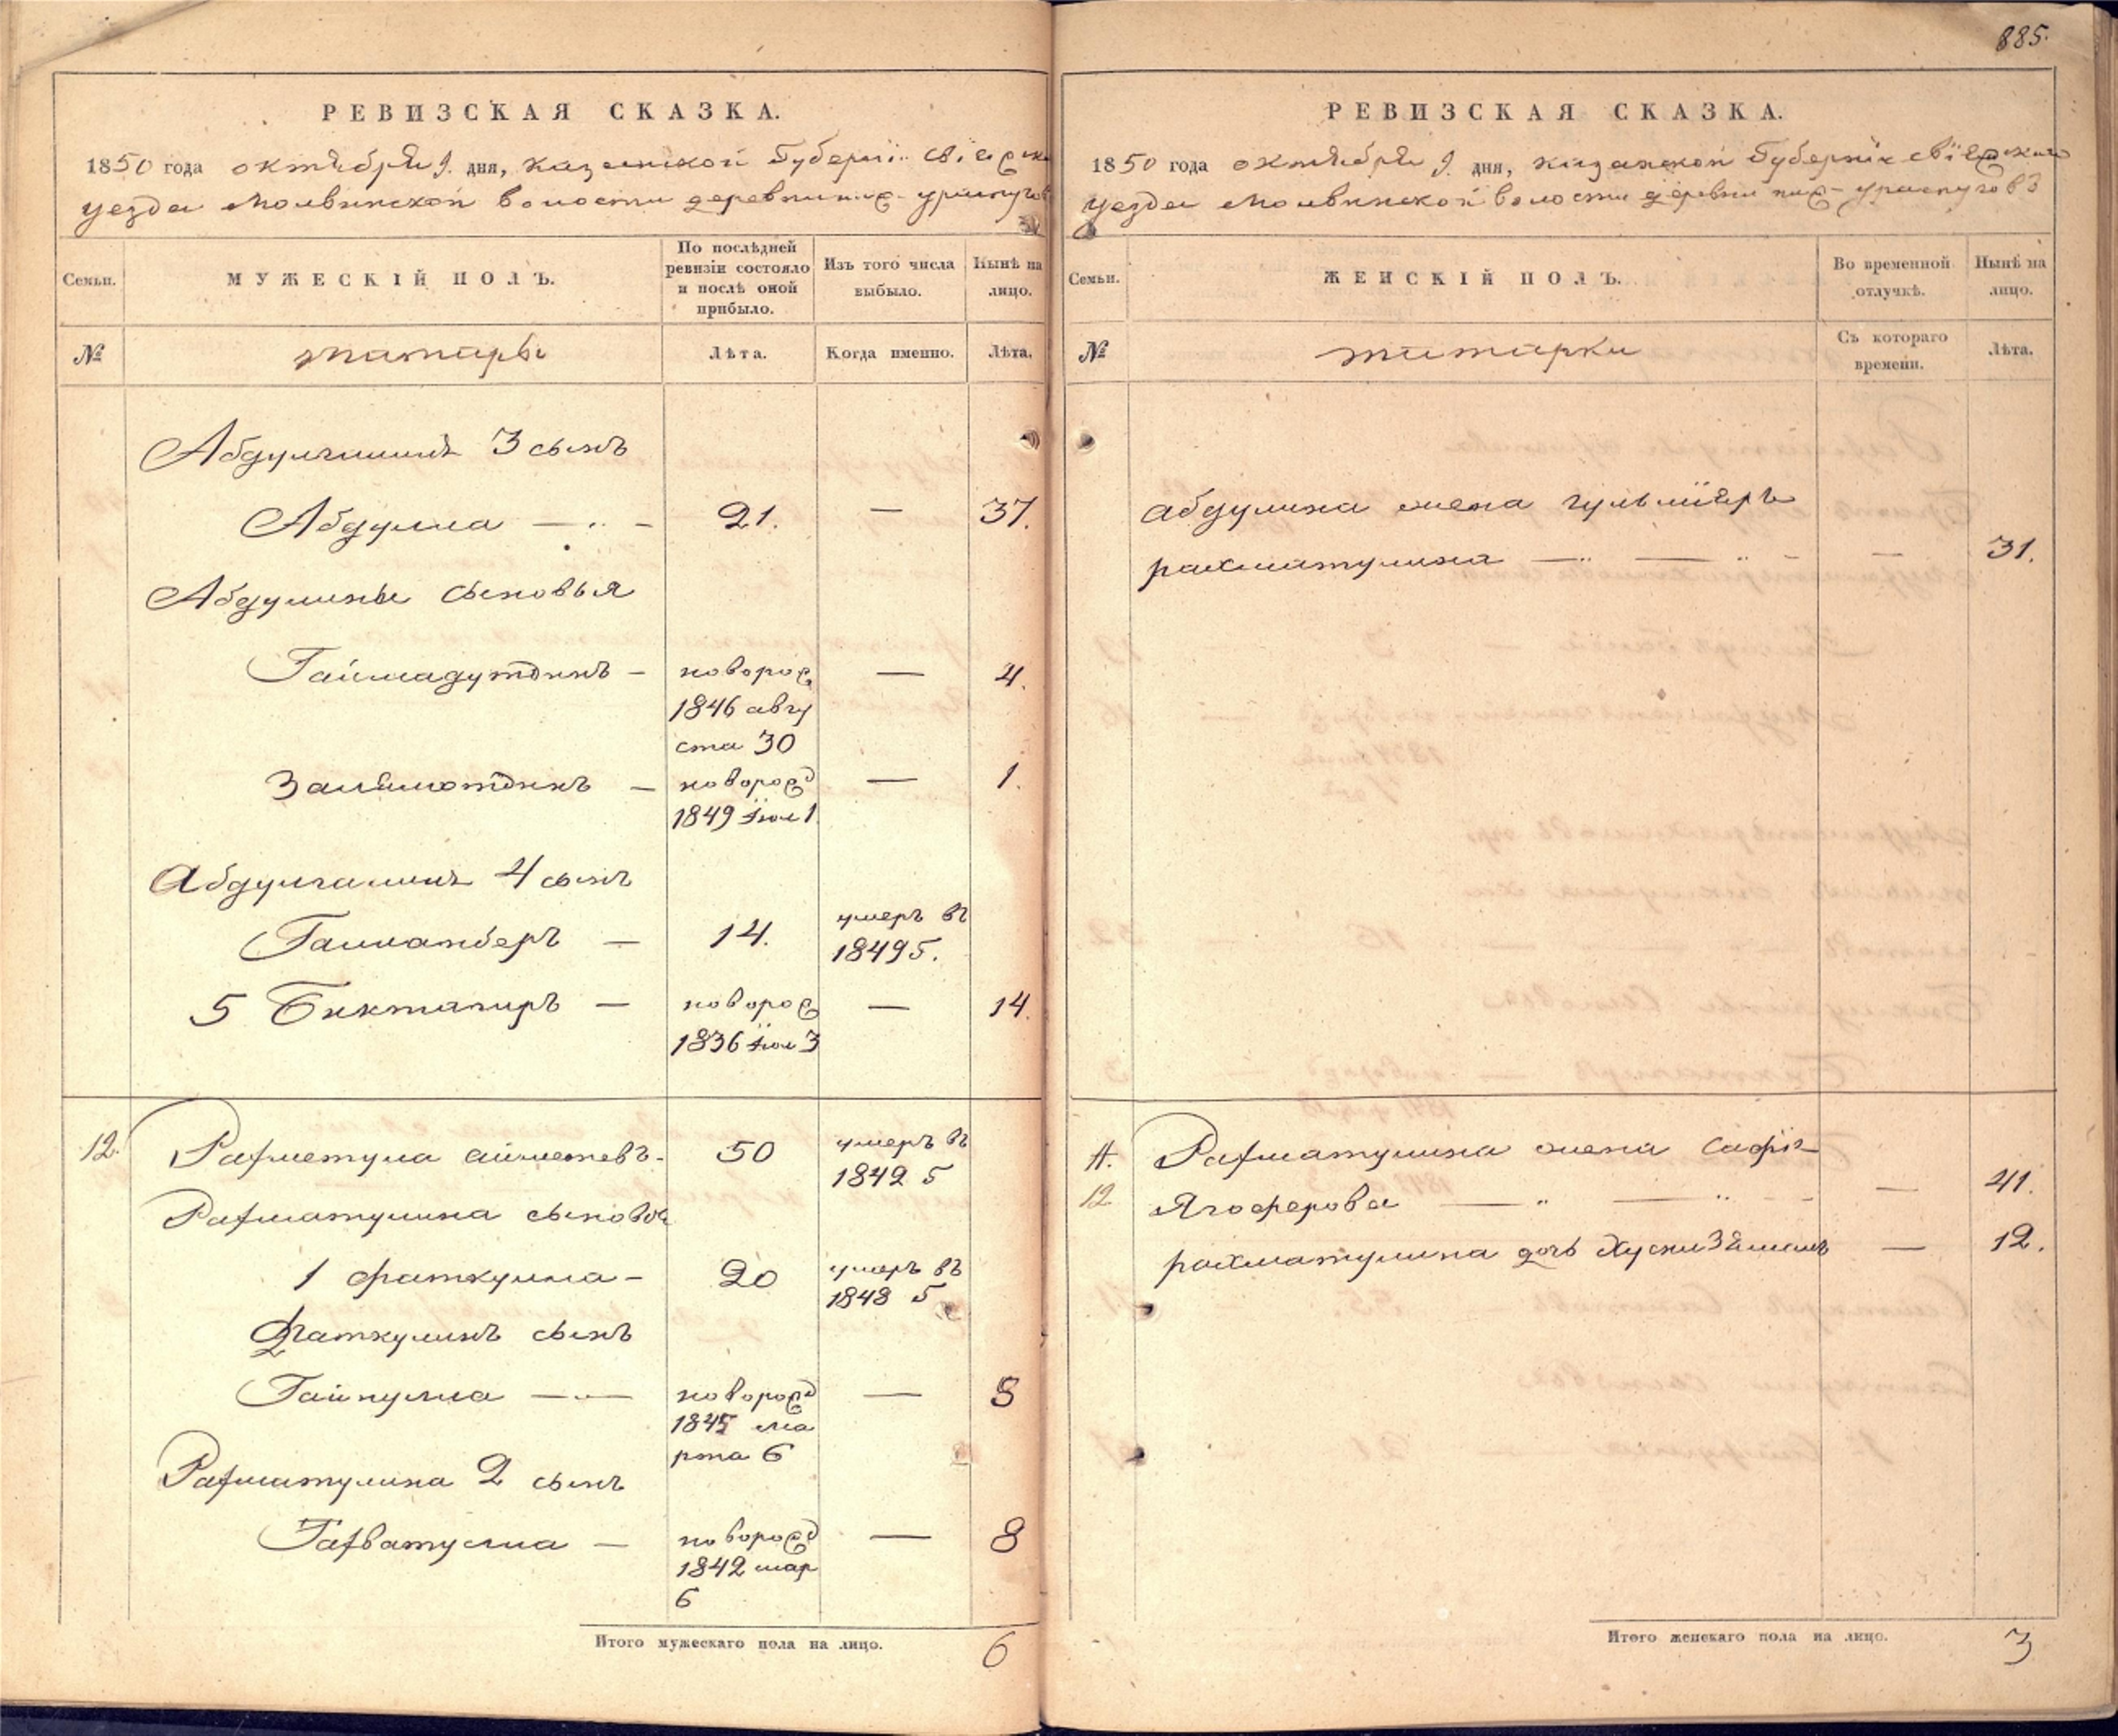 885.
РЕВИЗСКАЯ СКАЗКА.
1850 года октября 9. дня, казанской Губернїи свїяжска
уезда Молвинской волости деревни
Семьи.
МУЖЕСКІЙ ПОЛЪ.
По послѣдней ревизіи состояло и послѣ оной прибыло.
Изъ того числа выбыло.
Нынѣ на лицо.
№
татары
Лѣта.
Когда именно.
Лѣта.
3 сынъ
Абдулла — 21. — 37.
Абдулины сыновья
— новорож — 4.
1846 авгу
ста 30
— новорожд — 1.
1849 Їюл 1
4 сынъ
— 14. умеръ въ
1849 5.
5 Биктагиръ — новорож — 14.
1836 Їюл 3
12. Рахметула 50 умеръ въ
1842 5
Рахматулина сыновья
1 фаткулла — 20 умеръ въ
1848 5
Фаткулинъ сынъ
Гайнулла — новорожд — 8
1845 ма
рта 6
Рахматулина 2 сынъ
— новорожд — 8
1842 мар
6
Итого мужескаго пола на лицо. 6
РЕВИЗСКАЯ СКАЗКА.
1850 года октября 9. дня, казанской Губернїи свїяжскаго
уезда Молвинской волости деревни
Семьи.
ЖЕНСКІЙ ПОЛЪ.
Во временной отлучкѣ.
Нынѣ на лицо.
№
татарки
Съ котораго времени.
Лѣта.
абдулина жена
рахматулина — — — 31.
Рахматулина жена
12 Ягоферова — — — 41.
рахматулина дочь — 12.
Итого женскаго пола на лицо. 3